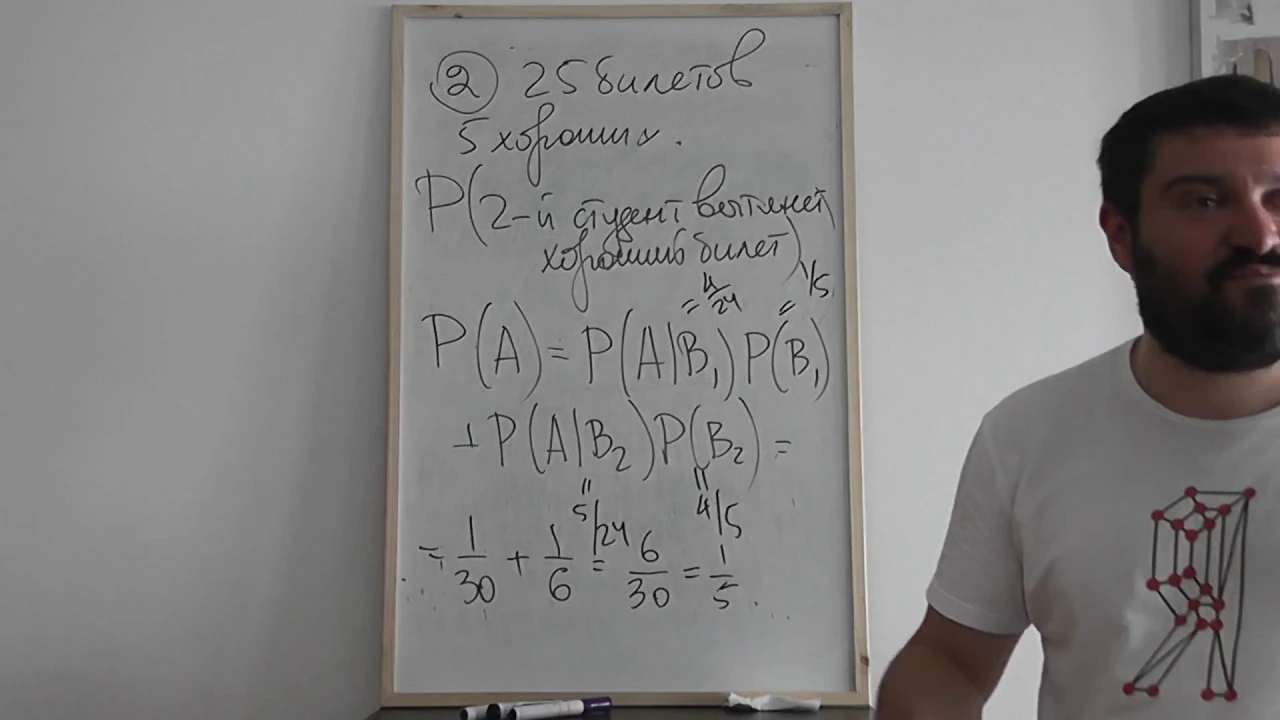 2 25 билетов
5 хороших.
P(2-й студент вытянет
хороший билет)
= 4/24 = 1/5
P(A) = P(A|B₁)P(B₁)
+ P(A|B₂)P(B₂) =
= 5/24 = 4/5
= 1/30 + 1/6 = 6/30 = 1/5.